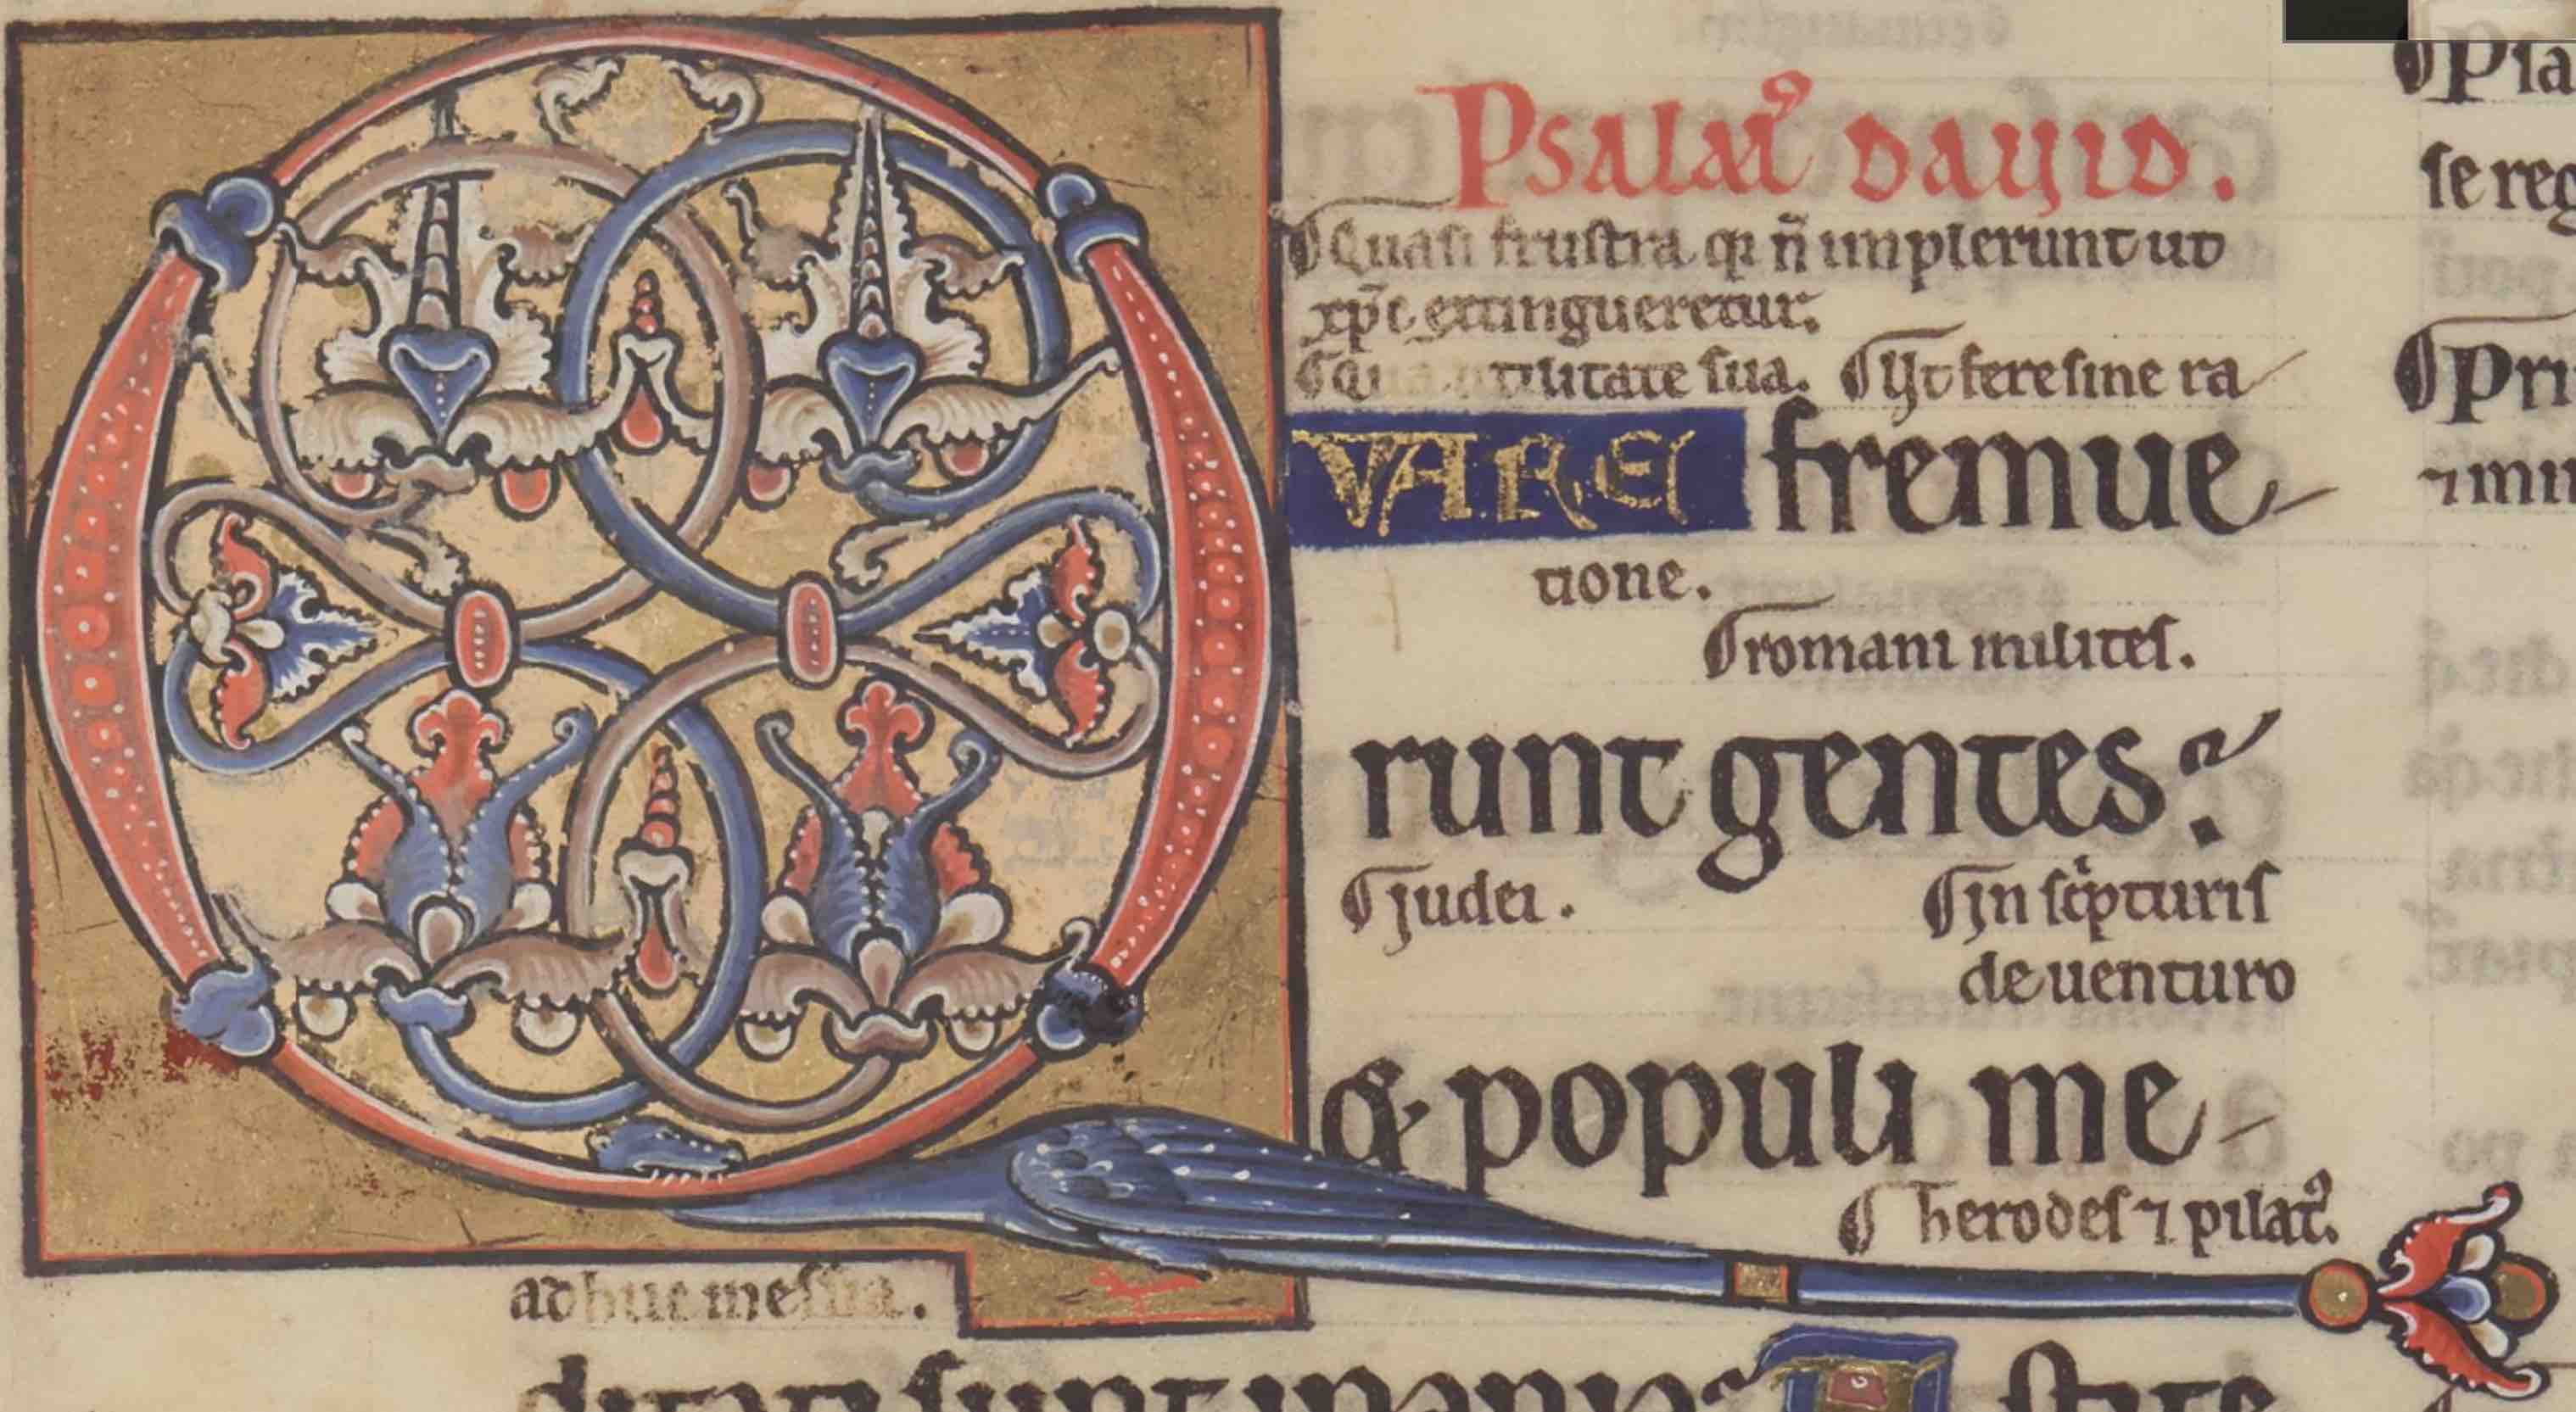 Psalm᾽ dauid.
Quasi frustra q̄ n̄ impleruntur ut
xp̄c extingueretur.
utilitate sua. Vt fere sine ra
QVARE fremue-
tione.
romani milites.
runt gentes?
iudei. in sc̓pturis
de uenturo
& populi me-
herodes ⁊ pilat᾽.
adhuc messia.
ditati sunt inania? A stite